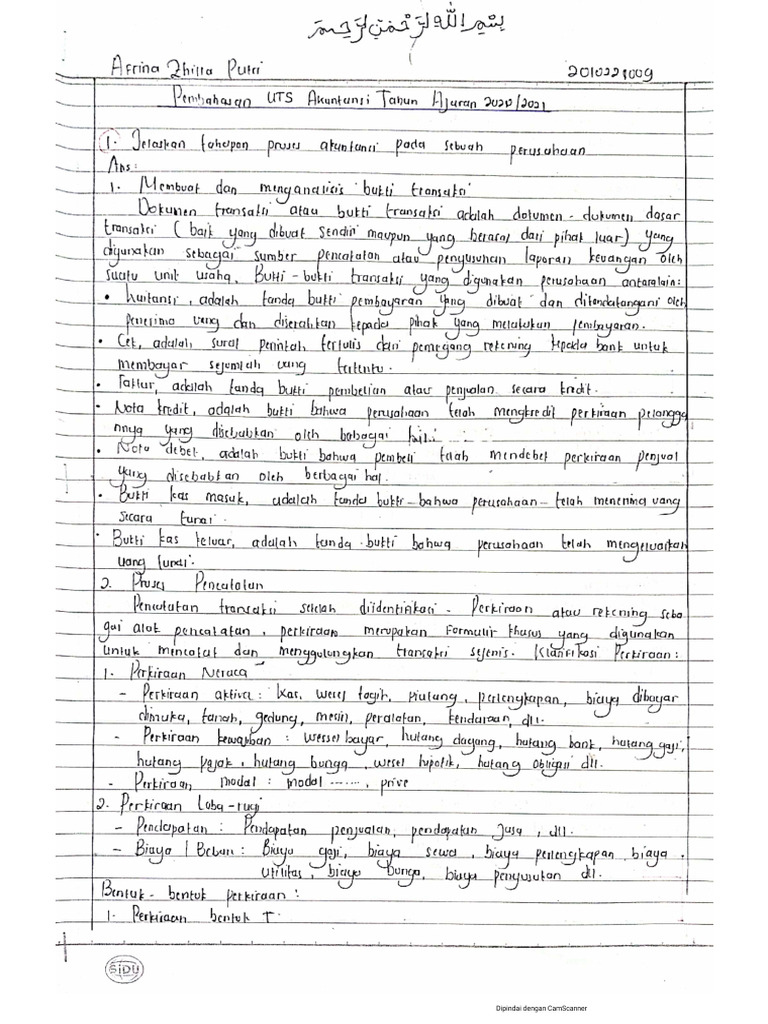 بسم الله الرحمن الرحيم
Afrina Zhilla Putri 2010221009
Pembahasan UTS Akuntansi Tahun Ajaran 2020/2021
1. Jelaskan tahapan proses akuntansi pada sebuah perusahaan
Ans:
1. Membuat dan menganalisis bukti transaksi
Dokumen transaksi atau bukti transaksi adalah dokumen-dokumen dasar
transaksi (baik yang dibuat sendiri maupun yang berasal dari pihak luar) yang
digunakan sebagai sumber pencatatan atau penyusunan laporan keuangan oleh
suatu unit usaha. Bukti-bukti transaksi yang digunakan perusahaan antaralain:
• kuitansi, adalah tanda bukti pembayaran yang dibuat dan ditandatangani oleh
penerima uang dan diserahkan kepada pihak yang melakukan pembayaran.
• Cek, adalah surat perintah tertulis dari pemegang rekening kepada bank untuk
membayar sejumlah uang tertentu.
• Faktur, adalah tanda bukti pembelian atau penjualan secara kredit.
• Nota kredit, adalah bukti bahwa perusahaan telah mengkredit perkiraan pelangga
nnya yang disebabkan oleh babagai
• Nota debet, adalah bukti bahwa pembeli telah mendebet perkiraan penjual
yang disebabkan oleh berbagai hal.
• Bukti kas masuk, adalah tanda bukti-bahwa perusahaan-telah menerima uang
secara tunai.
• Bukti kas keluar, adalah tanda bukti bahwa perusahaan telah mengeluarkan
uang tunai.
2. Proses Pencatatan
Pencatatan transaksi setelah diidentifikasi. Perkiraan atau rekening seba
gai alat pencatatan, perkiraan merupakan formulir khusus yang digunakan
untuk mencatat dan menggulungkan transaksi sejenis. Klasifikasi Perkiraan:
1. Perkiraan Neraca
- Perkiraan aktiva: Kas, wesel tagih, piutang, perlengkapan, biaya dibayar
dimuka, tanah, gedung, mesin, peralatan, kendaraan, dll.
- Perkiraan kewajiban: wessel bayar, hutang dagang, hutang bank, hutang gaji,
hutang pajak, hutang bunga, wesel hipotik, hutang obligasi dll.
- Perkiraan modal: modal ......, prive
2. Perkiraan Laba-rugi
- Pendapatan: Pendapatan penjualan, pendapatan Jasa, dll.
- Biaya / Beban: Biaya gaji, biaya sewa, biaya perlengkapan biaya
utilitas, biaya bunga, biaya penyusutan dll.
Bentuk-bentuk perkiraan:
1. Perkiraan bentuk T
SIDU
Dipindai dengan CamScanner